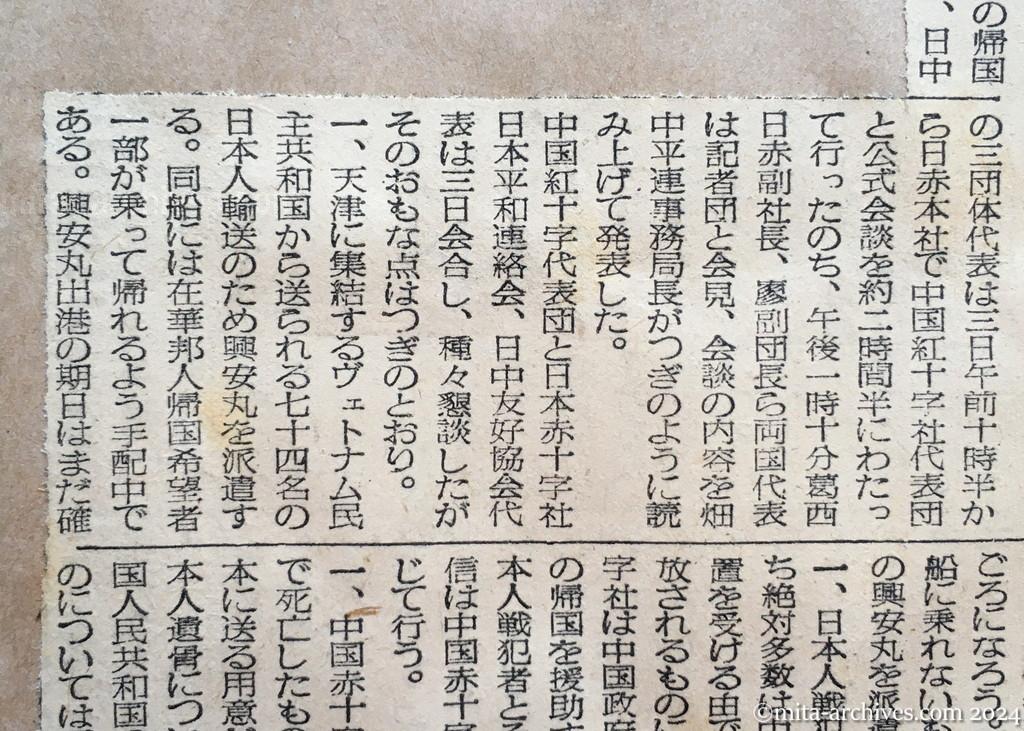 の帰国
、日中
の三団体代表は三日午前十時半か
ら日赤本社で中国紅十字社代表団
と公式会談を約二時間半にわたっ
て行ったのち、午後一時十分葛西
日赤副社長、廖副団長ら両国代表
は記者団と会見、会談の内容を畑
中平連事務局長がつぎのように読
み上げて発表した。
中国紅十字代表団と日本赤十字社
日本平和連絡会、日中友好協会代
表は三日会合し、種々懇談したが
そのおもな点はつぎのとおり。
一、天津に集結するヴェトナム民
主共和国から送られる七十四名の
日本人輸送のため興安丸を派遣す
る。同船には在華邦人帰国希望者
一部が乗って帰れるよう手配中で
ある。興安丸出港の期日はまだ確
ごろになろう。
船に乗れない
の興安丸を派遣
一、日本人戦犯
ち絶対多数は
置を受ける由で
放されるものに
字社は中国政府
の帰国を援助す
本人戦犯者と
信は中国赤十字
じて行う。
一、中国赤十
で死亡したも
本に送る用意
本人遺骨につ
国人民共和国
のについては
©mita-archives.com 2024